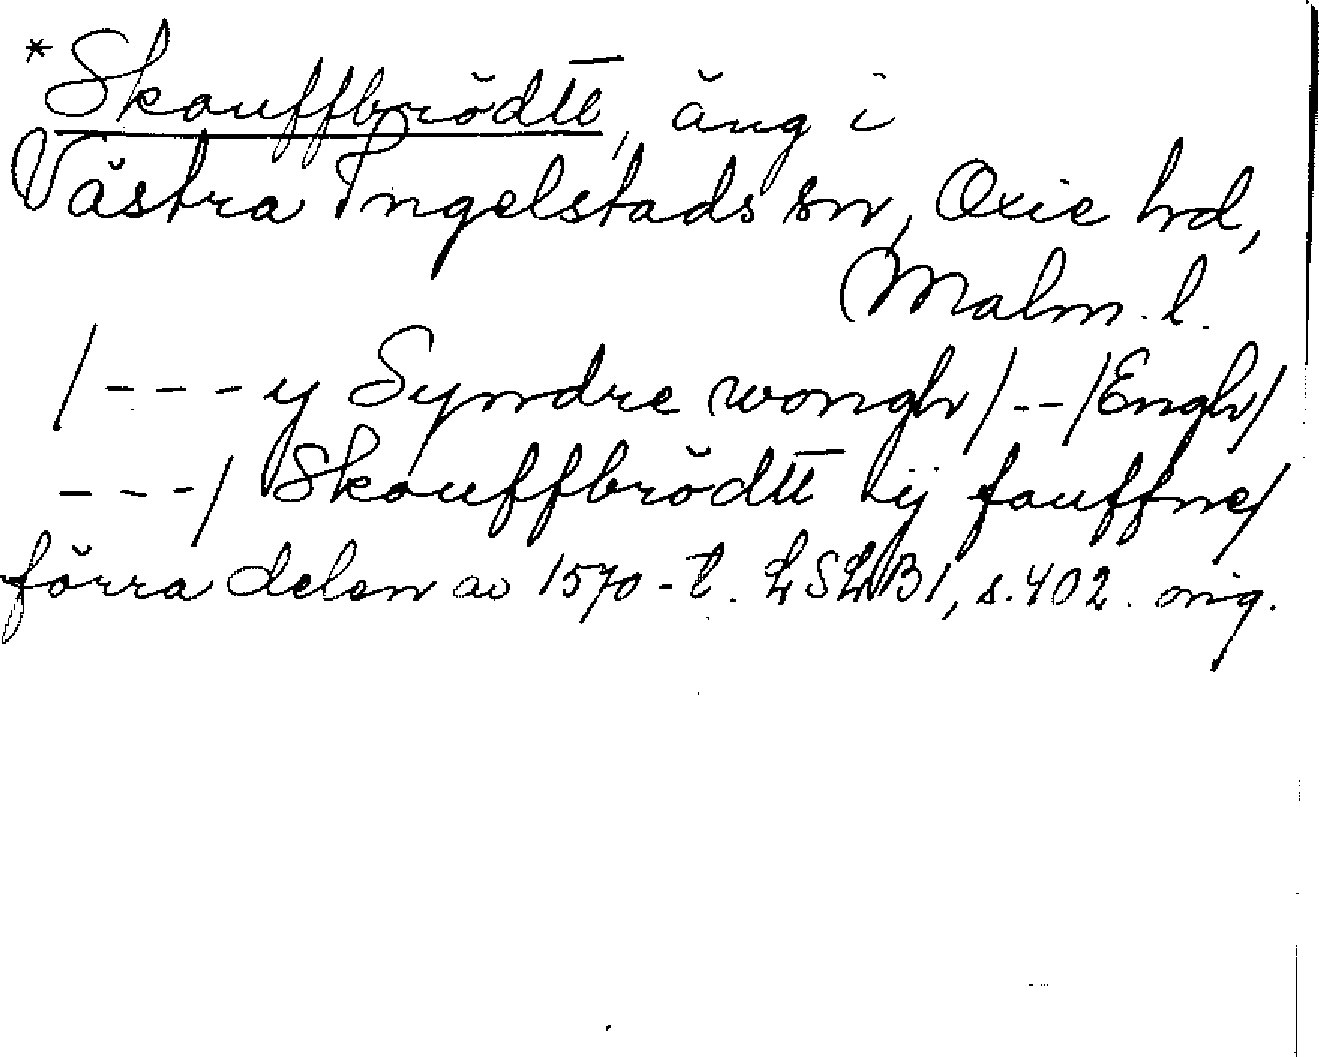 *Skouffbrödtt, äng i
Västra Ingelstads sn, Oxie hd,
Malm. l.
/---y Syndre wongh/--/Engh/
---/ Skouffbrödtt ij fouffne/
förra delen av 1570-t. LSLB1, s. 402. orig.